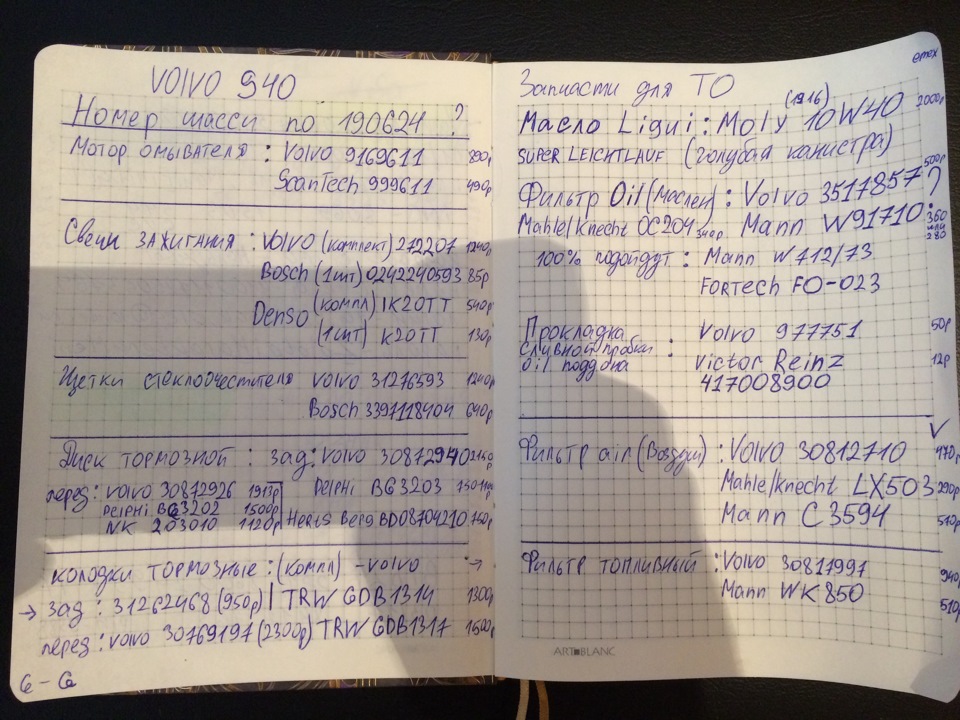 VOLVO 940
Номер шасси по 190624 ?
Мотор омывателя : Volvo 9169611 890р
ScanTech 999611 490р
Свечи зажигания : VOLVO (комплект) 272207 1240р
Bosch (1шт) 0242240593 85р
Denso (компл) IK20TT 540р
(1шт) K20TT 130р
Щетки стеклоочестителя Volvo 31276593 1240р
Bosch 3397118404 640р
Диск тормозной : зад: Volvo 30872940 2150р
перед: Volvo 30872926 1913р
Delphi BG3203
Delphi BG3202 1500р
NK 203010 1120р
Herts Berg BD08704210
колодки тормозные : (компл) - volvo →
→ зад : 31262468 (950р) | TRW GDB1314 1300р
перед: volvo 30769197 (2300р) TRW GDB1317 1500р
6 - 6
emex
Запчасти для ТО
(1916)
Масло Liqui : Moly 10W40 2000р
SUPER LEICHTLAUF (голубая канистра)
Фильтр Oil (маслен) : Volvo 3517857 ? 500р
Mahle/Knecht OC204 340р. Mann W91710 : 360 или 280
100% подойдут : Mann W712/73
Fortech FO-023
Прокладка сливной пробки oil поддона : Volvo 977751 50р
Victor Reinz 12р
417008900
Фильтр air (Воздуш) : Volvo 30812710 470р
Mahle/Knecht LX503 290р
Mann C3594 510р
Фильтр топливный : Volvo 30817997 940р
Mann WK850 510р
ARTBLANC